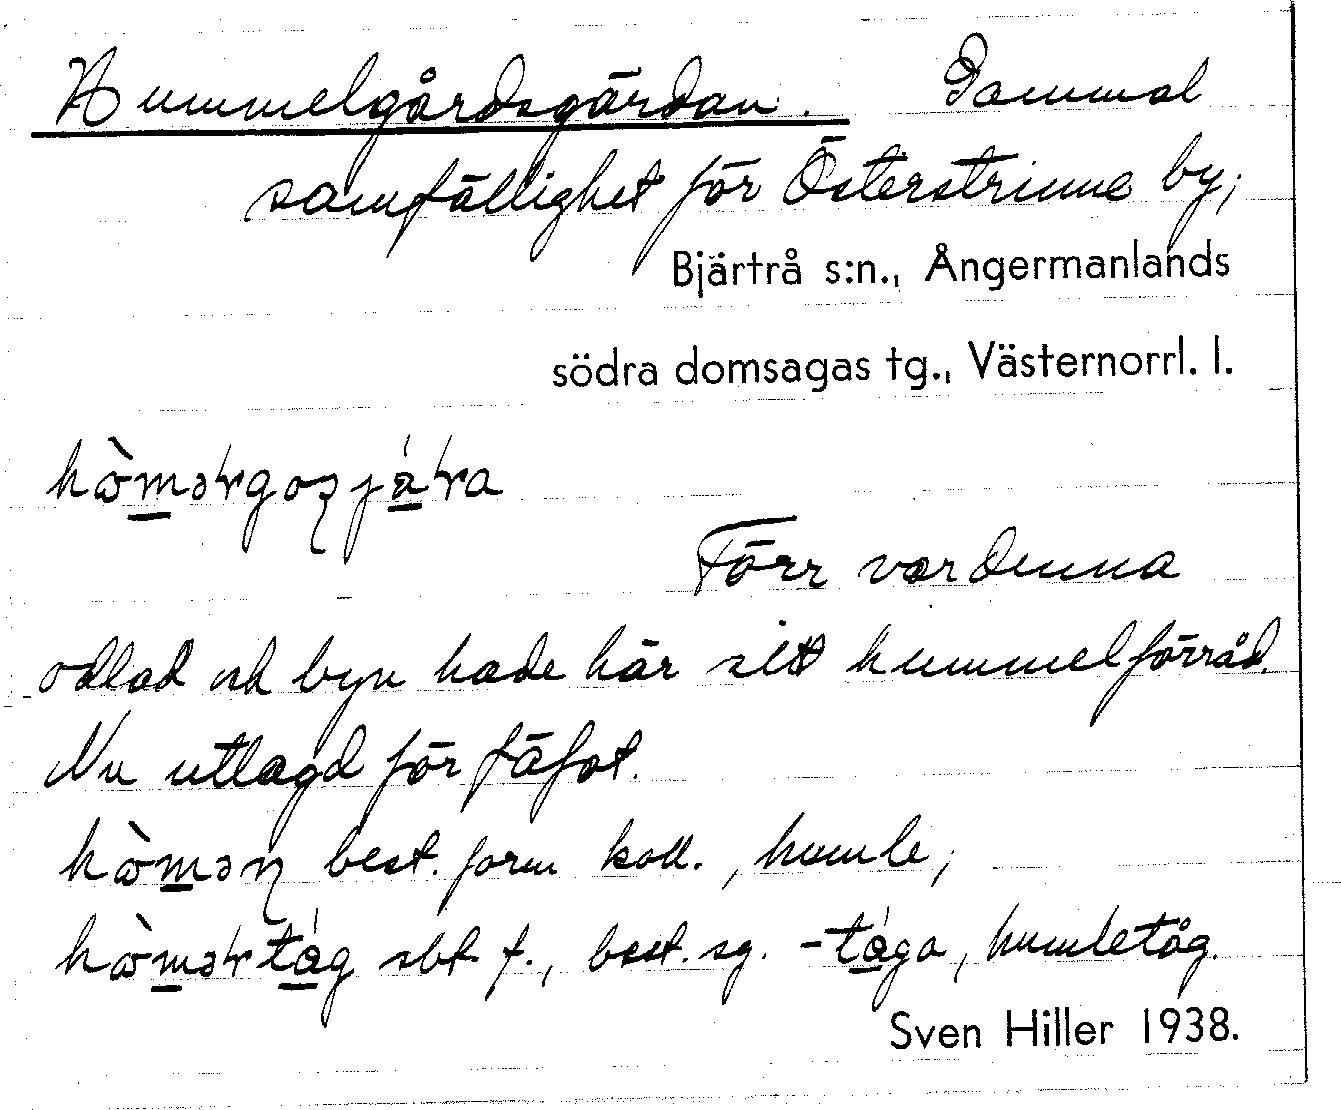 Hummelgårdsgärdan. Gammal
samfällighet för Österstrinne by;
Bjärtrå s:n., Ångermanlands
södra domsagas tg., Västernorrl. l.
Förr var denna
odlad och byn hade här sitt hummelförråd.
Nu utlagd för fäfot.
best. form koll., humle;
sbt f., best. sg. -tåga, humletåg.
Sven Hiller 1938.